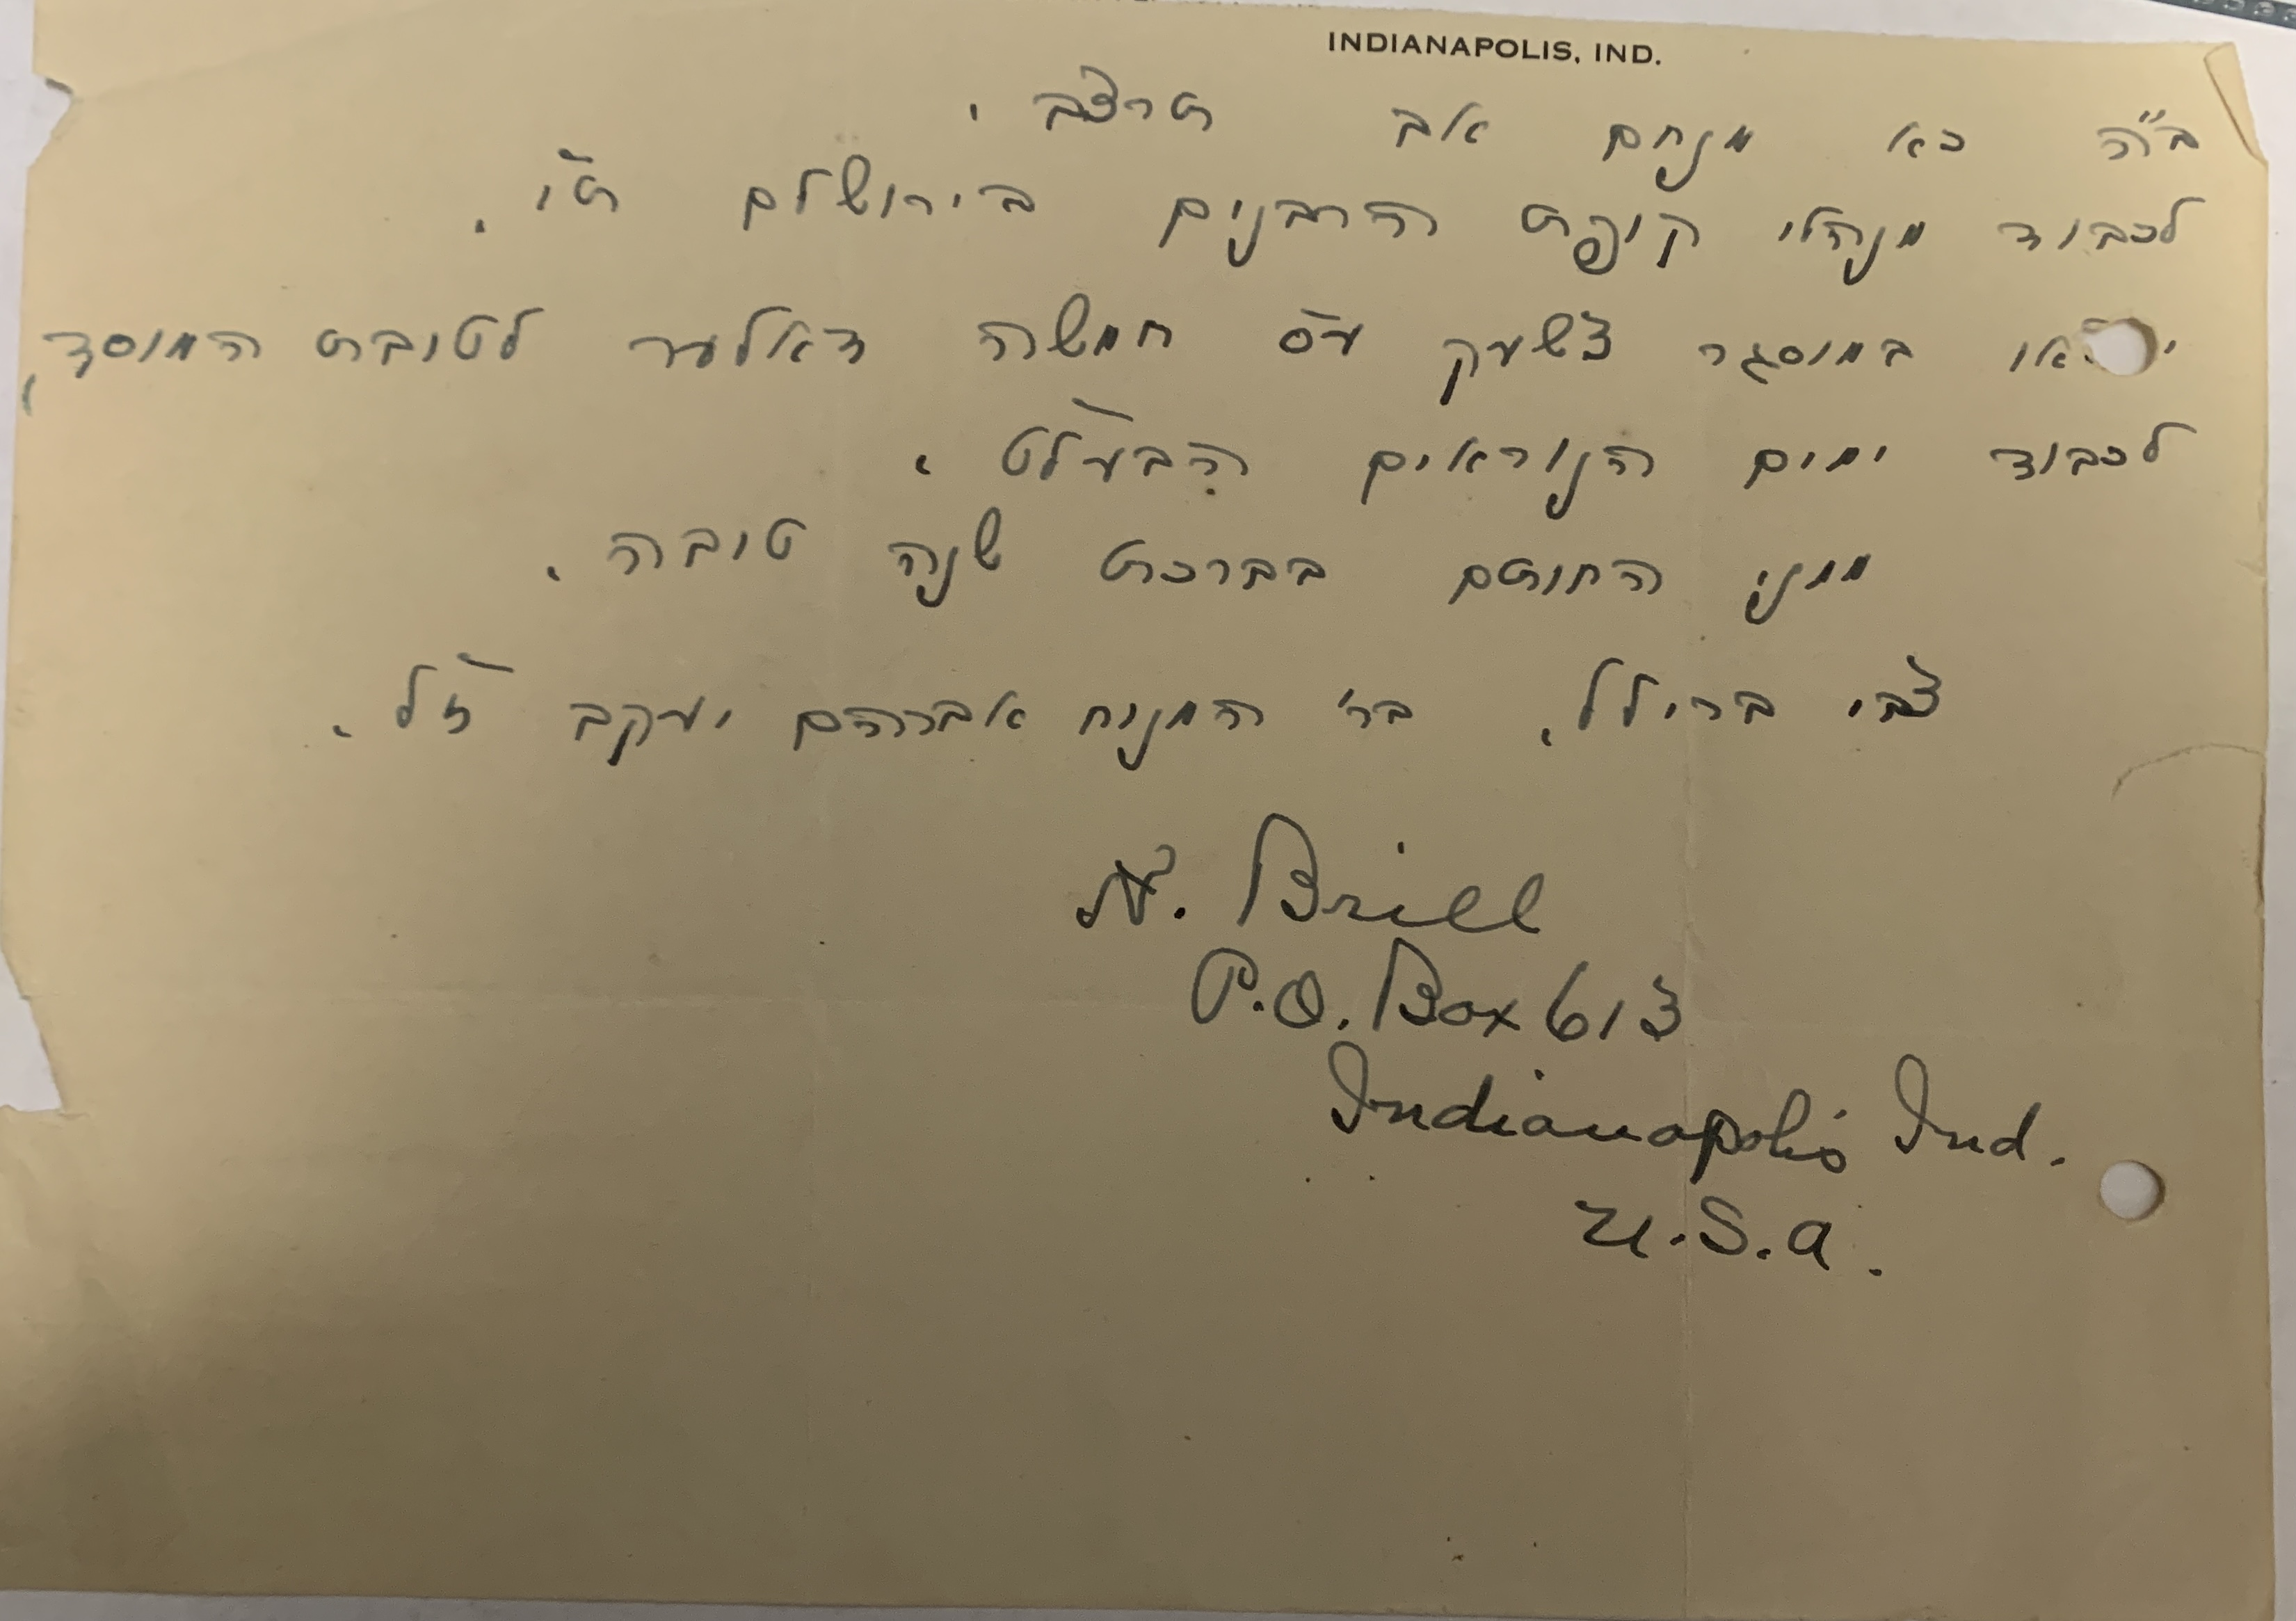 INDIANAPOLIS, IND.
ב"ה כא מנחם אב תרצב.
לכבוד מנהלי קופת הרבנים בירושלם תו.
במוסגר צשעק עס חמשה דאלער לטובת המוסד,
לכבוד ימים הנוראים הבעלט.
ממני החותם בברכת שנה טובה.
צבי ברילל, בר' המנוח אברהם יעקב ז"ל.
N. Brill
P.O. Box 613
Indianapolis Ind.
U.S.a.